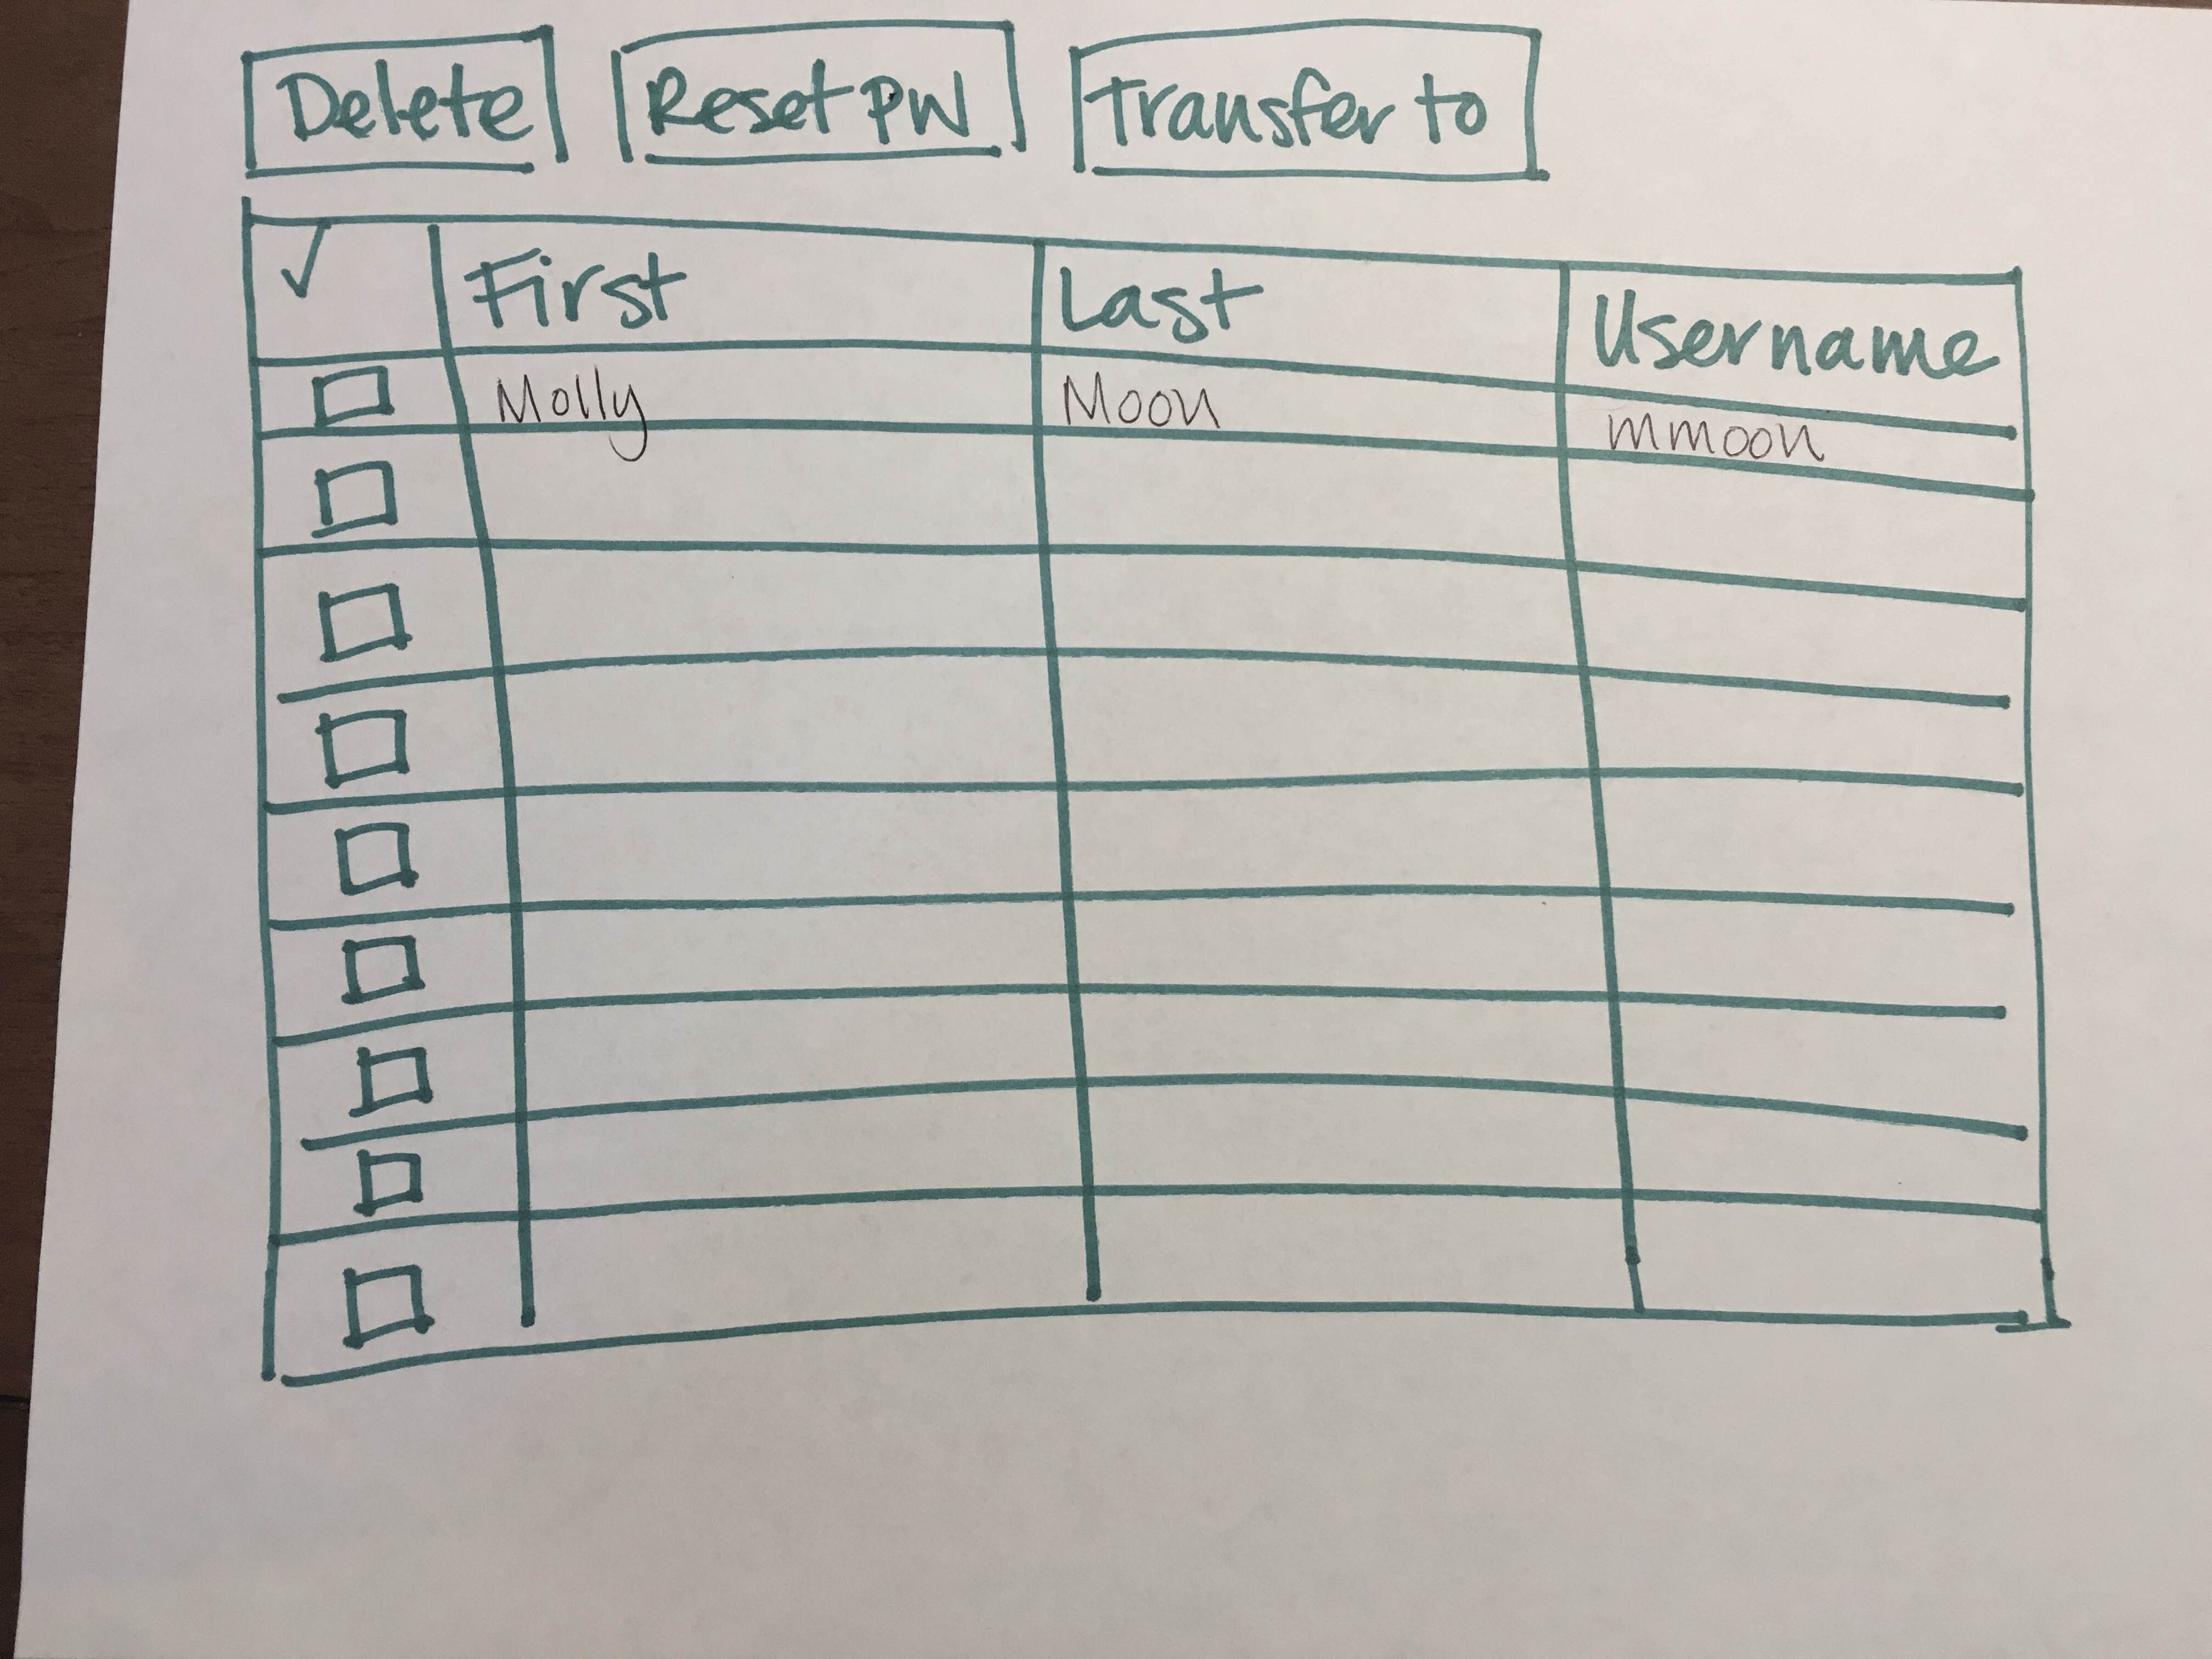 Delete Reset PW Transfer to
✓ First Last Username
Molly Moon mmoon